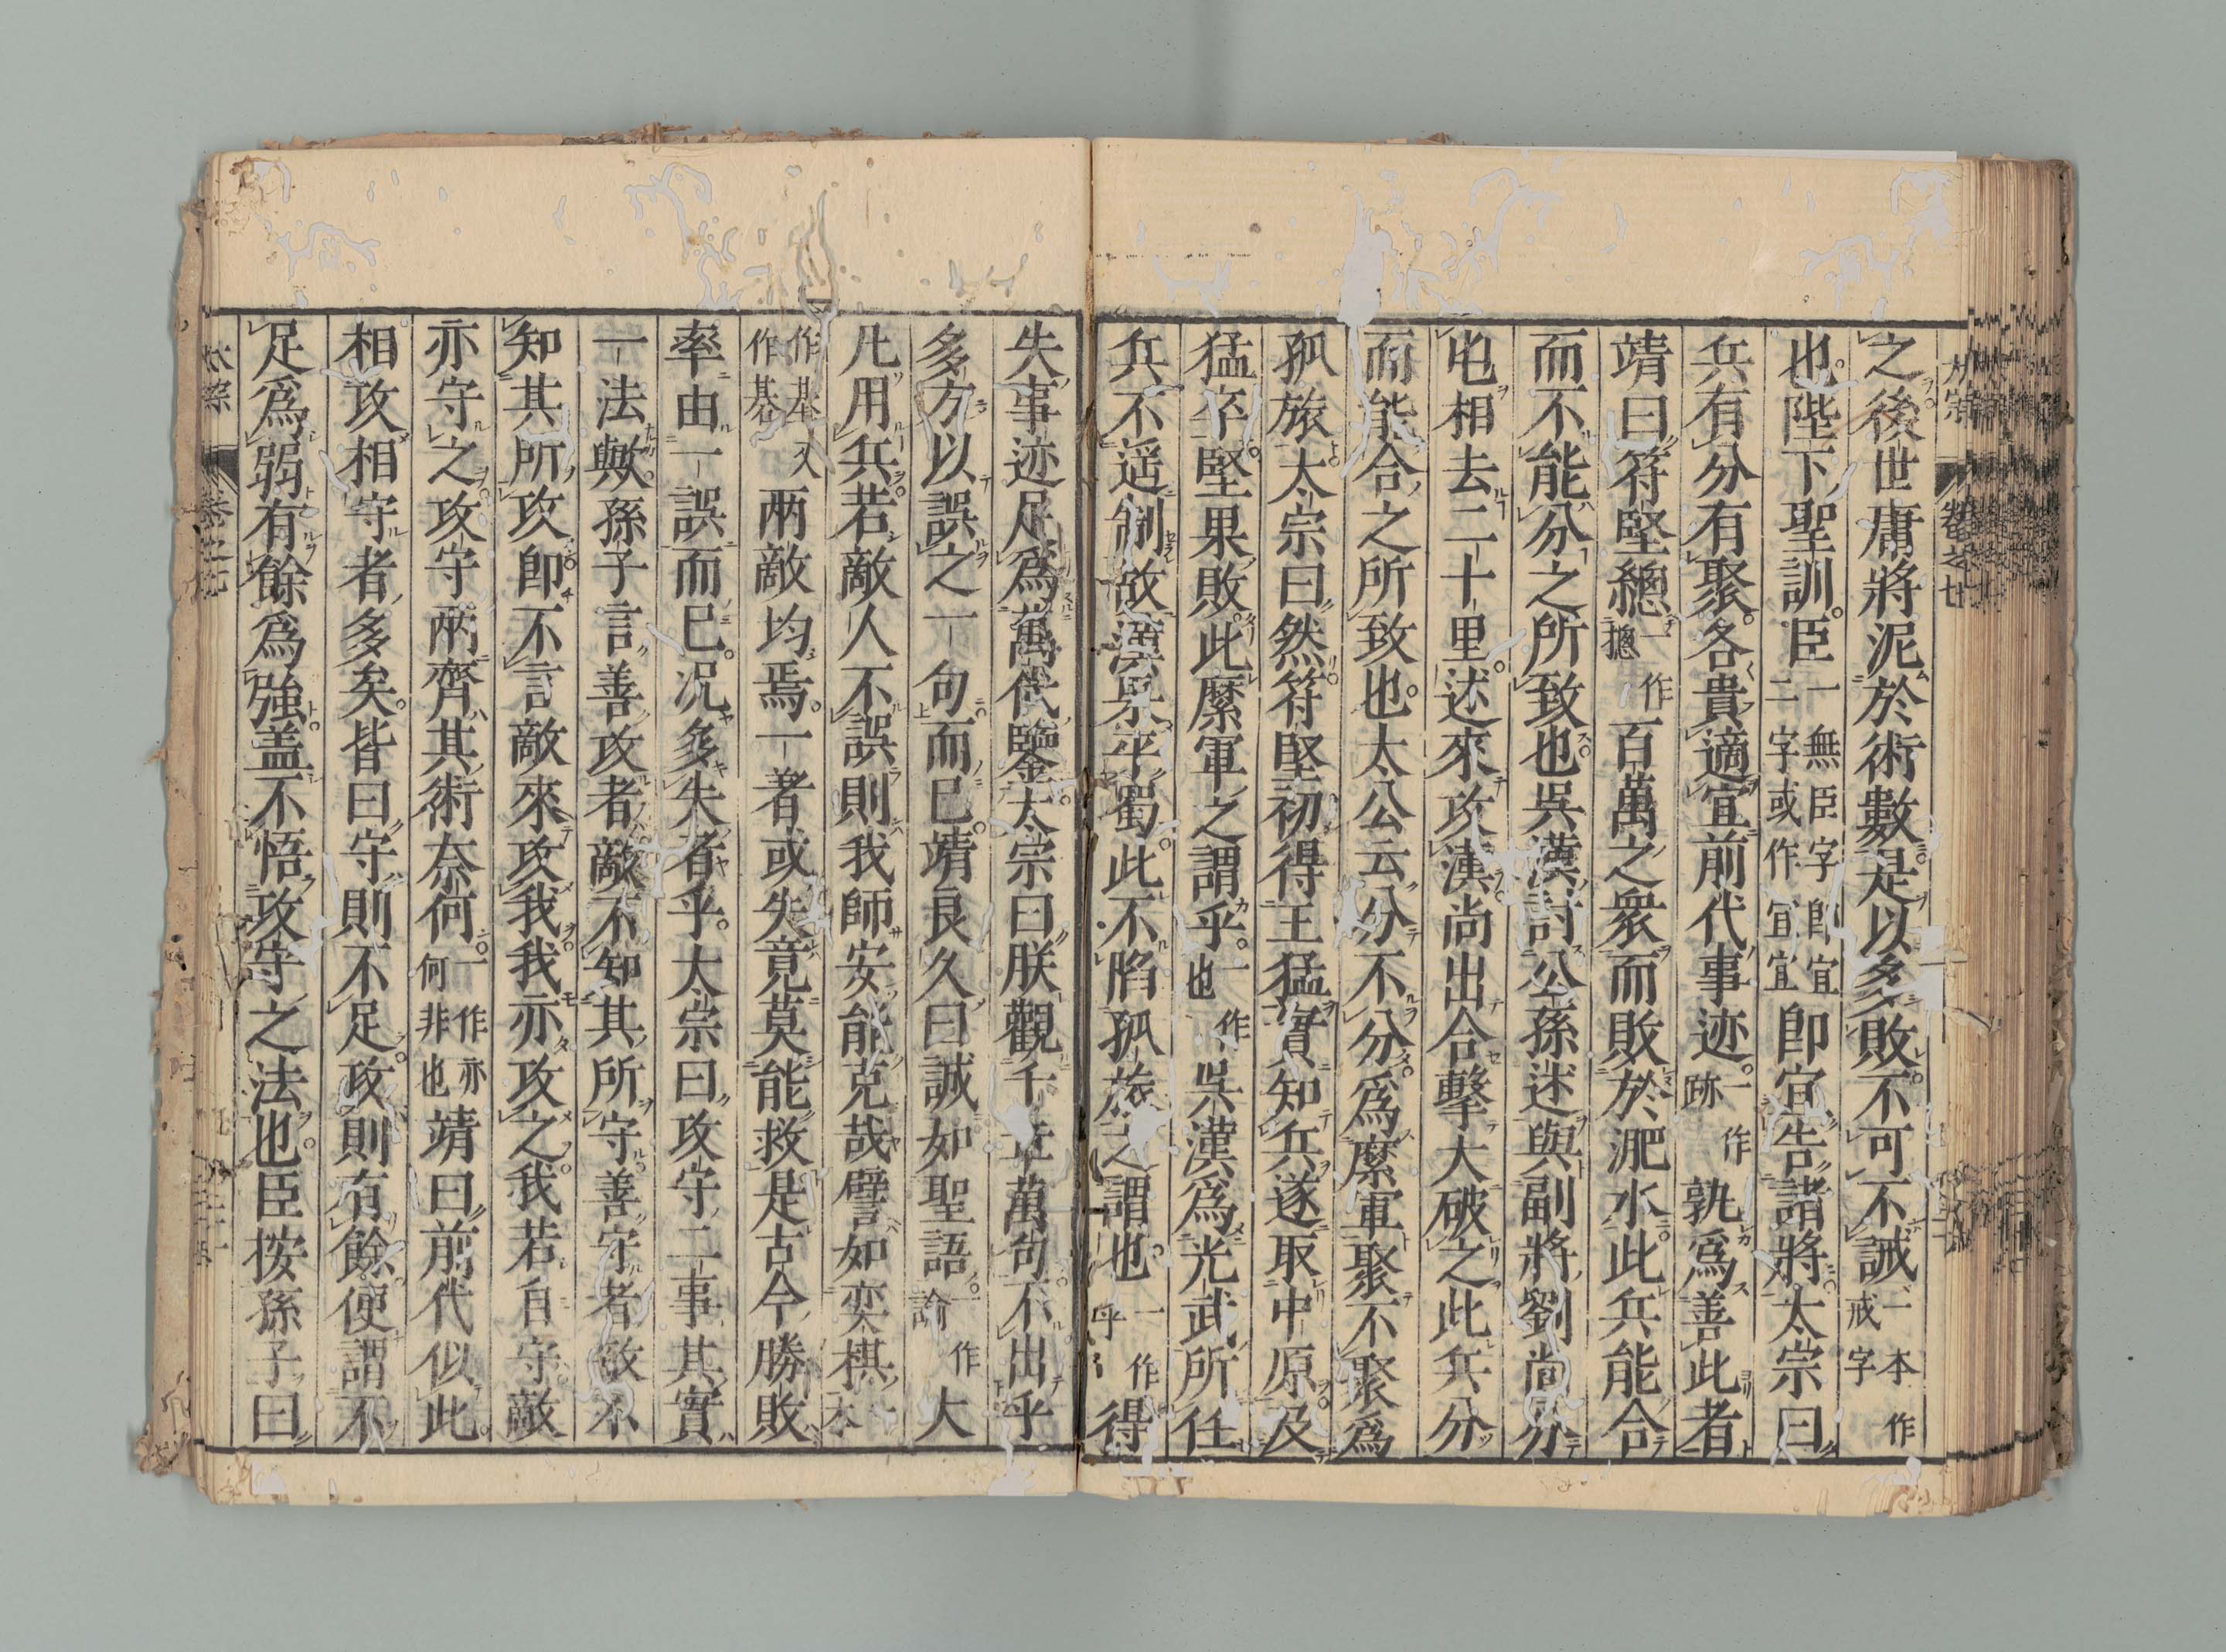 之後世庸將泥於術數是以多敗不可不誡一本作戒字
也陛下聖訓臣一無臣字即宜二字或作宜宜即宜告諸將太宗曰
兵有分有聚各貴適宜前代事迹一作跡孰爲善此者
靖曰符堅總一作摠百萬之衆而敗於淝水此兵能合
而不能分之所致也吳漢討公孫述與副將劉尚分
屯相去二十里述來攻漢尚出合擊大破之此兵分
而能合之所致也太公云分不分爲縻軍聚不聚爲
孤旅太宗曰然符堅初得王猛實知兵遂取中原及
猛卒堅果敗此縻軍之謂乎一作也吳漢爲光武所任
兵不遥制故漢果平蜀此不陷孤旅之謂也一作乎得
失事迹足爲萬代鑒太宗曰朕觀千章萬句不出乎
多方以誤之一句而已靖良久曰誠如聖語一作諭大
凡用兵若敵人不誤則我師安能克哉譬如奕棋一本
作基又作棊两敵均焉一著或失竟莫能救是古今勝敗
率由一誤而已况多失者乎太宗曰攻守二事其實
一法歟孫子言善攻者敵不知其所守善守者敵不
知其所攻即不言敵來攻我我亦攻之我若自守敵
亦守之攻守兩齊其術奈何一作亦何非也靖曰前代似此
相攻相守者多矣皆曰守則不足攻則有餘便謂不
足爲弱有餘爲強盖不悟攻守之法也臣按孫子曰
太宗 卷之七